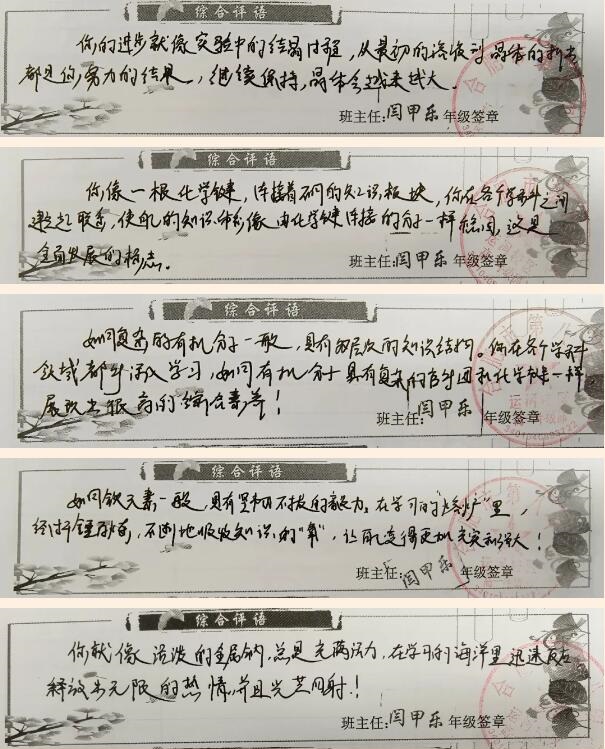 综合评语
你的进步就像实验中的结晶过程，从最初的溶液到晶体的析出
都是你努力的结果，继续保持，晶体会越来越大。
班主任:闫甲乐 年级签章
综合评语
你像一根化学键，连接着不同的知识板块，你在各个学科之间
建起联系，使自己的知识 像由化学键连接的分子一样稳固，这是
全面发展的标志。
班主任:闫甲乐 年级签章
综合评语
如同复杂的有机分子一般，具有多层次的知识结构。你在各个学科
领域都 深入学习，如同有机分子具有复杂的官能团和化学键一样
展现出很高的综合素养！
闫甲乐 年级签章
综合评语
如同铁元素一般，具有坚韧不拔的毅力。在学习的“熔炉”里，
经历锤炼，不断地吸收知识的“氧”，让自己变得更加充实和强大！
班主任:闫甲乐 年级签章
综合评语
你就像活泼的金属钠，总是充满活力，在学习的海洋里迅速反应
释放出无限的热情，并且光芒四射！
班主任:闫甲乐 年级签章